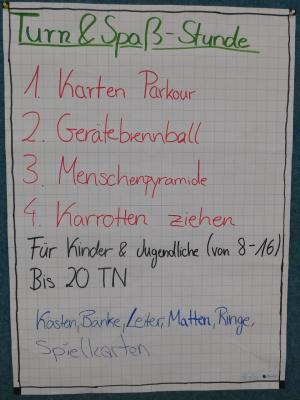 Turn & Spaß-Stunde
1. Karten Parkour
2. Gerätebrennball
3. Menschenpyramide
4. Karrotten ziehen
Für Kinder & Jugendliche (von 8-16)
Bis 20 TN
Kästen, Bänke, Leiter, Matten, Ringe,
Spielkarten